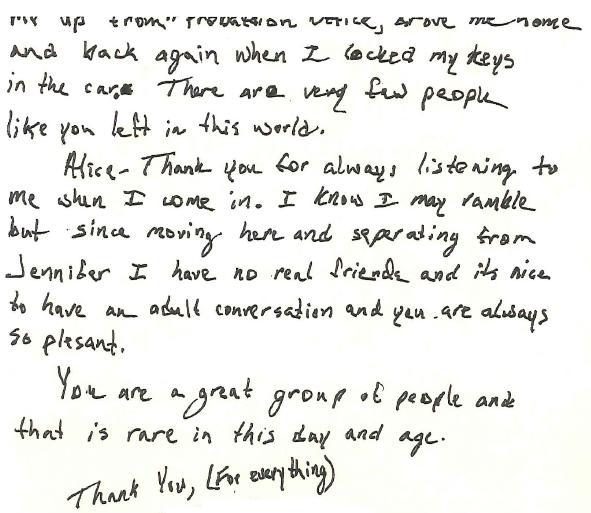 me up from" Probation Office, drove me home
and back again when I locked my keys
in the car. There are very few people
like you left in this world.
Alice- Thank you for always listening to
me when I come in. I know I may ramble
but since moving here and seperating from
Jennifer I have no real friends and its nice
to have an adult conversation and you are always
so plesant.
You are a great group of people and
that is rare in this day and age.
Thank You, (For everything)